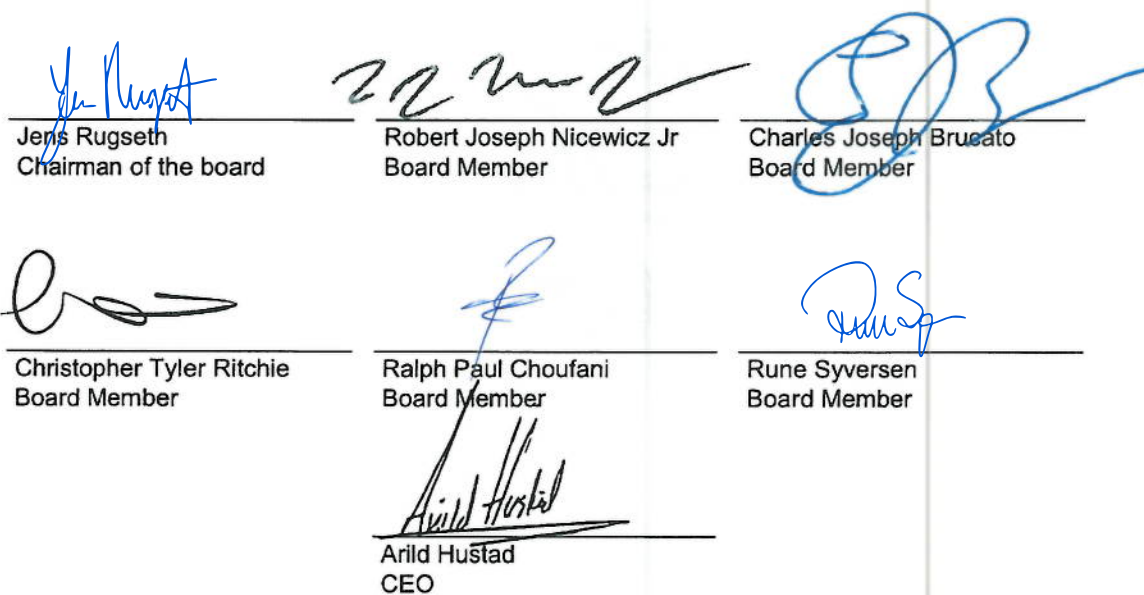 Jens Rugseth
Chairman of the board
Robert Joseph Nicewicz Jr
Board Member
Charles Joseph Brucato
Board Member
Christopher Tyler Ritchie
Board Member
Ralph Paul Choufani
Board Member
Rune Syversen
Board Member
Arild Hustad
Arild Hustad
CEO